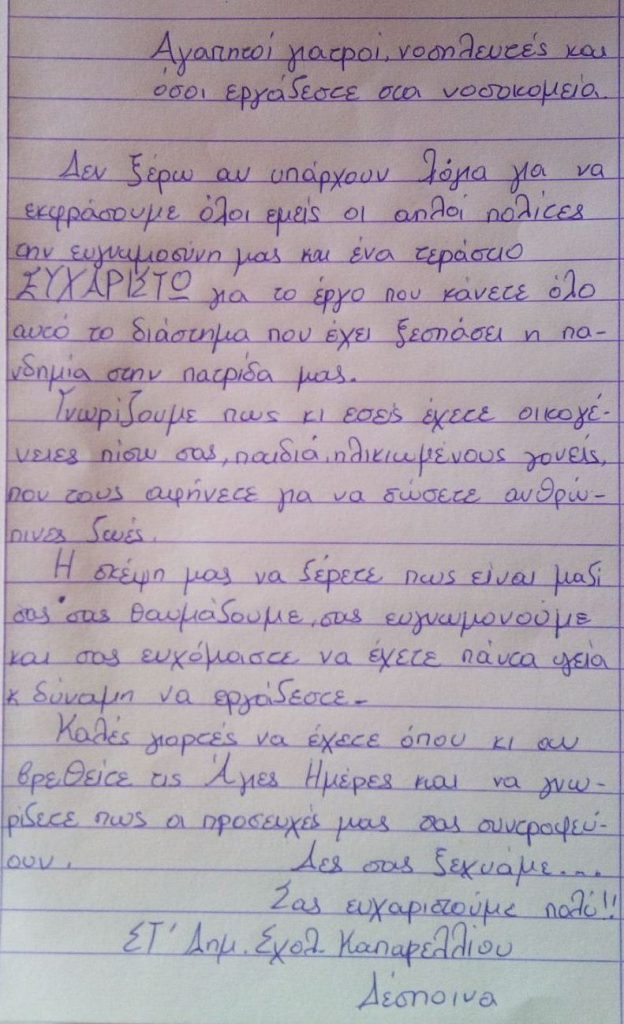 Αγαπητοί γιατροί, νοσηλευτές και
όσοι εργάζεστε στα νοσοκομεία.
Δεν ξέρω αν υπάρχουν λόγια για να
εκφράσουμε όλοι εμείς οι απλοί πολίτες
την ευγνωμοσύνη μας και ένα τεράστιο
ΕΥΧΑΡΙΣΤΩ για το έργο που κάνετε όλο
αυτό το διάστημα που έχει ξεσπάσει η πα-
νδημία στην πατρίδα μας.
Γνωρίζουμε πως κι εσείς έχετε οικογέ-
νειες πίσω σας, παιδιά, ηλικιωμένους γονείς,
που τους αφήνετε για να σώσετε ανθρώ-
πινες ζωές.
Η σκέψη μας να ξέρετε πως είναι μαζί
σας· σας θαυμάζουμε, σας ευγνωμονούμε
και σας ευχόμαστε να έχετε πάντα υγεία
κ δύναμη να εργάζεστε.
Καλές γιορτές να έχετε όπου κι αν
βρεθείτε τις Άγιες Ημέρες και να γνω-
ρίζετε πως οι προσευχές μας σας συντροφεύ-
ουν. Δες σας ξεχνάμε....
Σας ευχαριστούμε πολύ!!
ΣΤ' Δημ. Σχολ. Καπαρελλίου
Δέσποινα